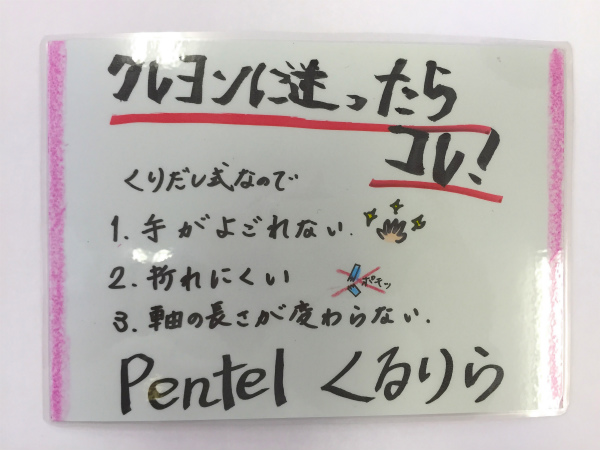 クレヨンに迷ったら
コレ!
くりだし式なので
1. 手がよごれない.
2. 折れにくい
ポキッ
3. 軸の長さが変わらない.
Pentel くるりら